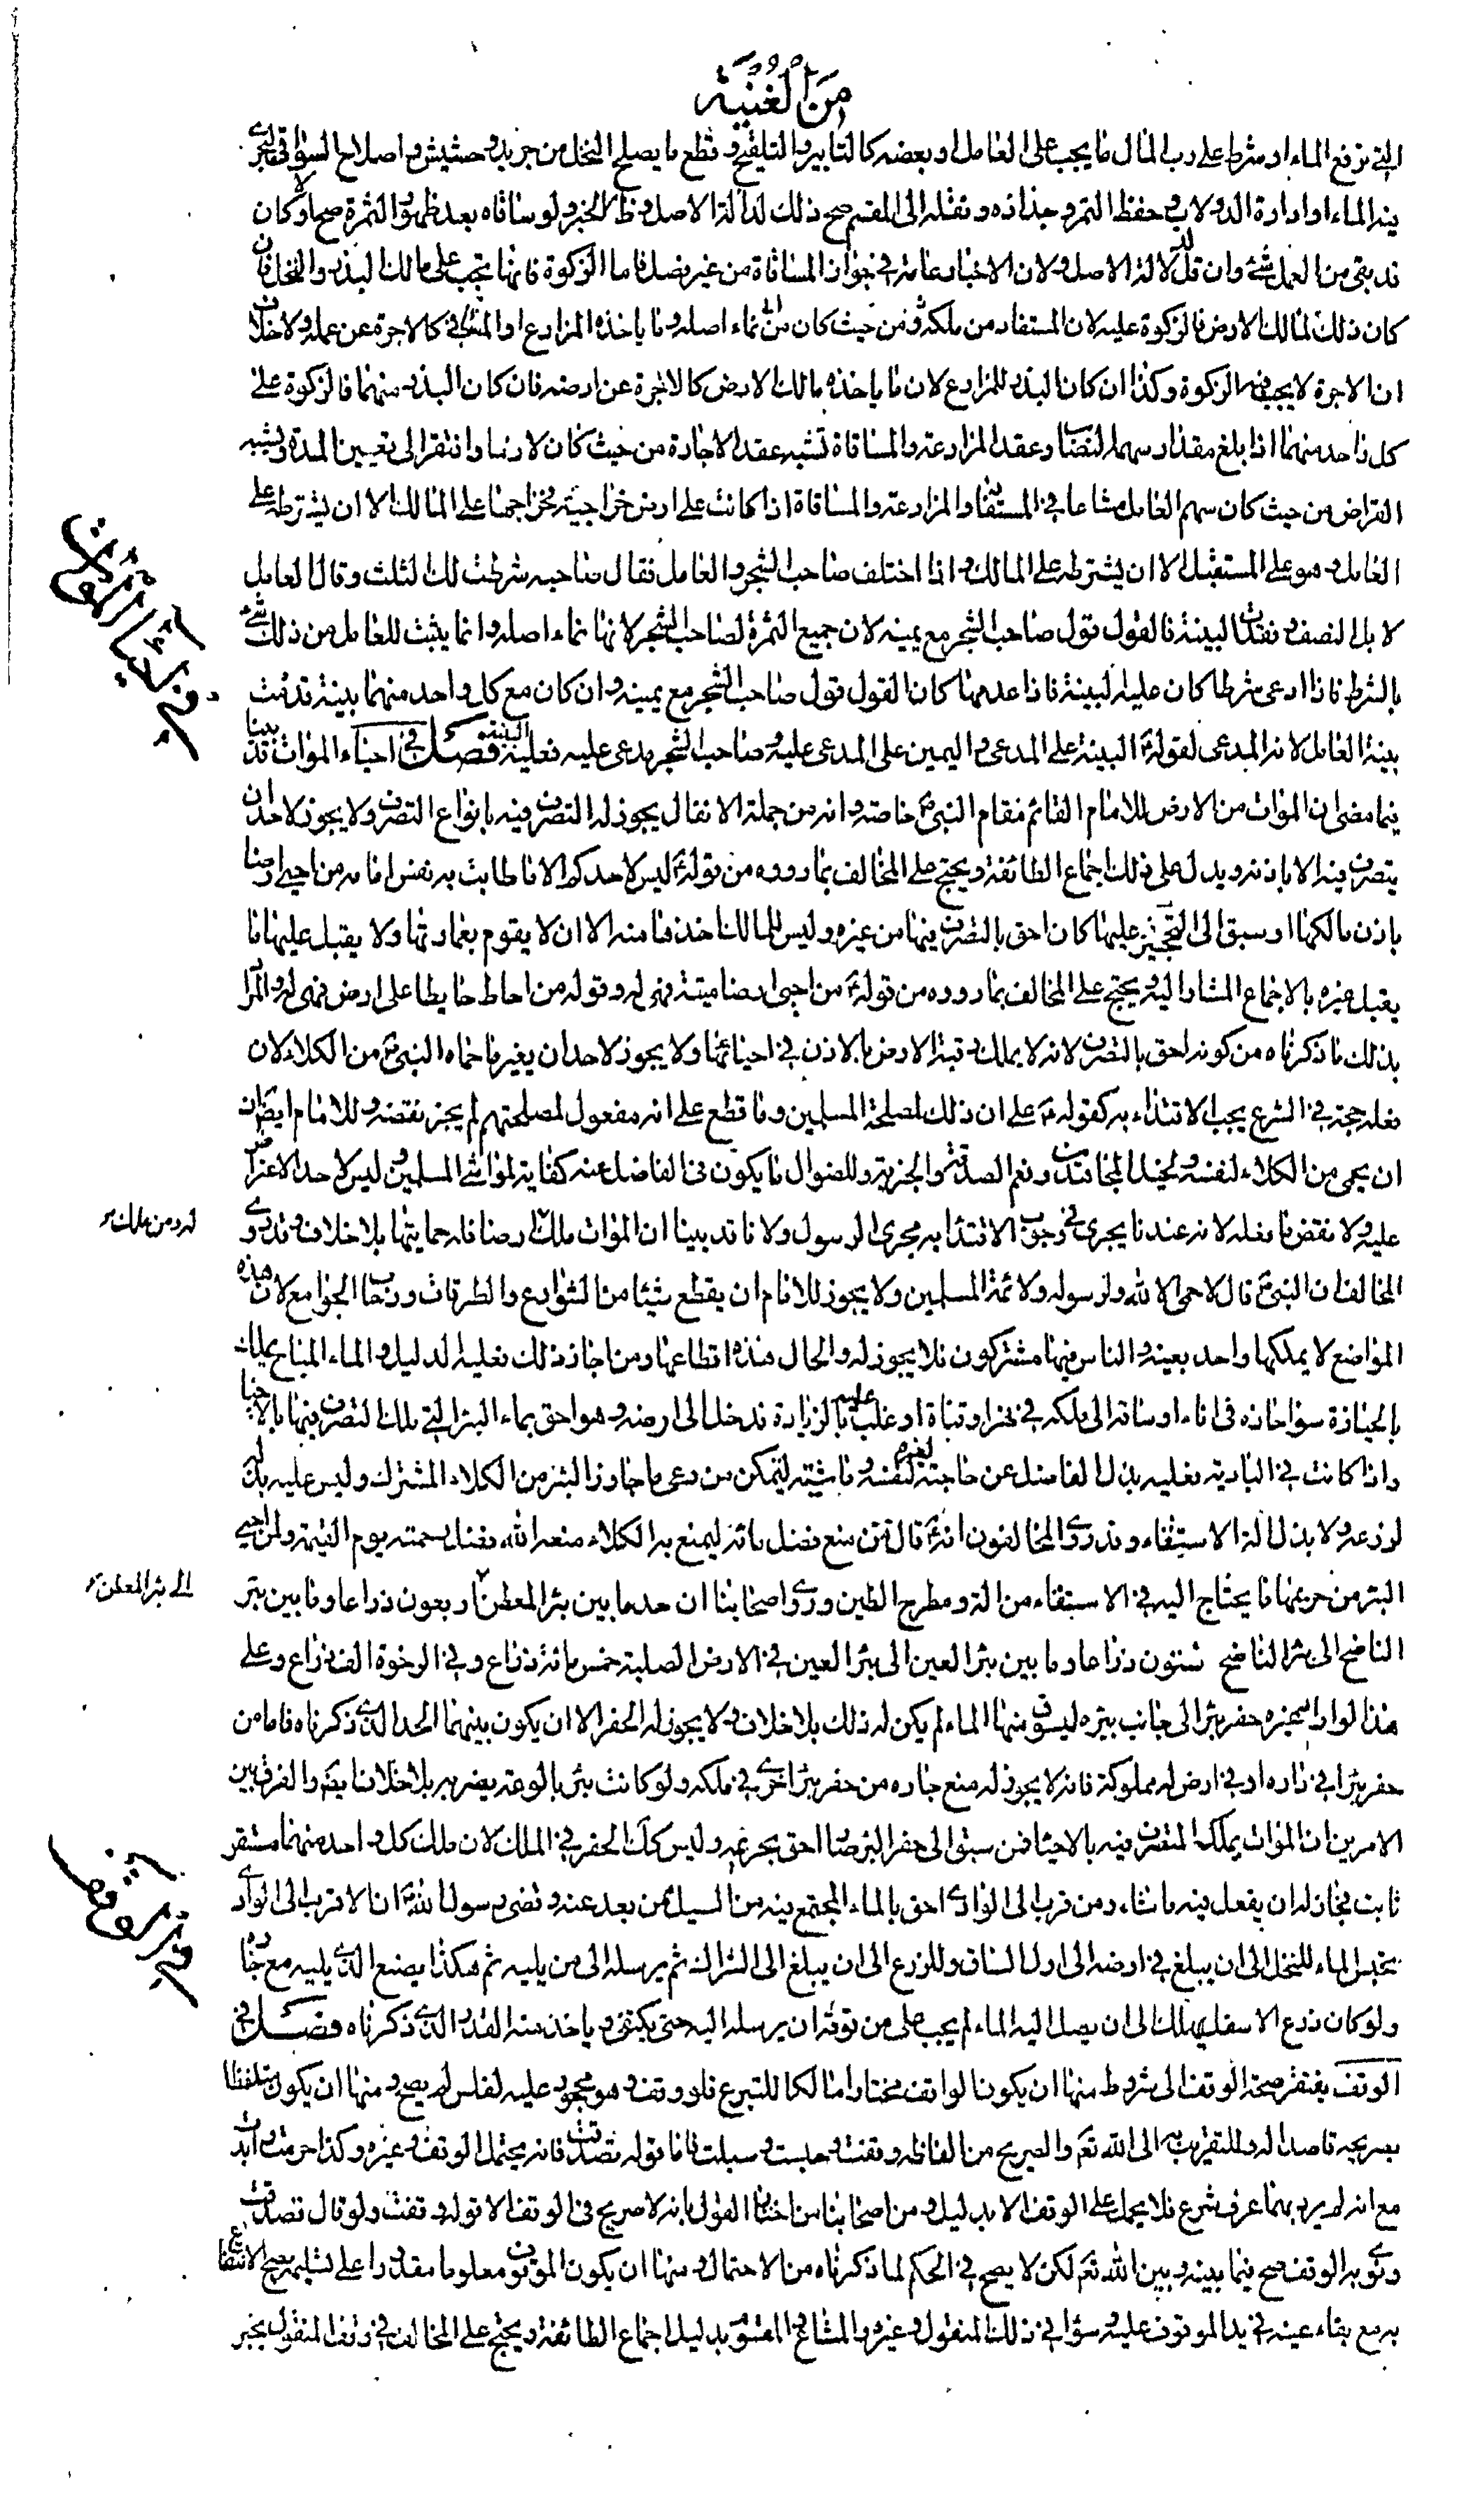 من الغنية
التي ترفع الماء او شرط على رب المال ما يجب على العامل او بعضه كالتابير والتلقيح و قطع ما يصلح النخل من جريد و حشيش و اصلاح السواقي ليجري
فيها الماء او ادارة الدولاب و حفظ الثمر و جذاذه و نقله الى المقسم صح ذلك لدلالة الاصل و ظاهر الخبر و لو ساقاه بعد ظهور الثمرة صح اذا كان
قد بقي من العمل شئ وان قل لدلالة الاصل و لان الاخبار عامة في جواز المساقاة من غير فصل فاما الزكوة فانها تجب على مالك البذر والنخل فان
كان ذلك لمالك الارض فالزكوة عليه لان المستفاد من ملكه من حيث كان نماء اصله و ما ياخذه المزارع او المساقي كالاجرة عن عمله و لا خلاف
ان الاجرة لا يجب فيها الزكوة و كذا ان كان البذر للمزارع لان ما ياخذه مالك الارض كالاجرة عن ارضه فان كان البذر منهما فالزكوة على
كل واحد منهما اذا بلغ مقدار سهمه النصاب و عقد المزارعة والمساقاة تشبه عقد الاجارة من حيث كان لازما و افتقر الى تعيين المدة و يشبه
القراض من حيث كان سهم العامل مشاعا في المستفاد والمزارعة والمساقاة اذا كانت على ارض خراجية فخراجها على المالك الا ان يشترطه على
العامل و هو على المستقبل الا ان يشترطه على المالك و اذا اختلف صاحب الشجر والعامل فقال صاحبه شرطت لك الثلث وقال العامل
لا بل النصف و فقدت البينة فالقول قول صاحب الشجر مع يمينه لان جميع الثمرة لصاحب الشجر لانها نماء اصله و انما يثبت للعامل من ذلك شئ
بالشرط فاذا ادعى شرطا كان عليه البينة فاذا عدمها كان القول قول صاحب الشجر مع يمينه و ان كان مع كل واحد منهما بينة قدمت
بينة العامل لانه المدعى لقوله ع البينة على المدعى و اليمين على المدعى عليه و صاحب الشجر مدعى عليه فعليه فصل في احياء الموات قد بينا
فيما مضى ان الموات من الارض للامام القائم مقام النبي ص خاصة و انه من جملة الانفال يجوز له التصرف فيه بانواع التصرف و لا يجوز لاحد ان
يتصرف فيه الا باذنه و يدل على ذلك اجماع الطائفة و يحتج على المخالف بما رووه من قوله ع ليس لاحدكم الا ما طابت به نفس امامه من احيى ارضا
باذن مالكها او سبق الى التحجير عليها كان احق بالتصرف فيها من غيره وليس للمالك اخذها منه الا ان لا يقوم بعمارتها ولا يقبل عليها ما
يقبل غيره بالاجماع المشار اليه و يحتج على المخالف بما رووه من قوله ع من احيى ارضا ميتة فهي له و قوله من احاط حايطا على ارض فهي له والمراد
بذلك ما ذكرناه من كونه احق بالتصرف لانه لا يملك رقبة الارض بالاذن في احيائها ولا يجوز لاحد ان يغير ما حماه النبي ص من الكلاء لان
فعله حجة في الشرع يجب الاقتداء به كقوله ع على ان ذلك لمصلحة المسلمين وما قطع على انه مفعول لمصلحتهم لم يجز نقضه و للامام ايضا
ان يحمي من الكلاء لنفسه و لخيل المجاهدين و نعم الصدقة والجزية و للضوال ما يكون في الفاضل عنه كفاية لمواشي المسلمين و ليس لاحد الاعتراض
عليه و لا نقض ما فعله لانه عندنا يجري في وجوب الاقتداء به مجرى الرسول و لانا قد بينا ان الموات ملك له و من ملك ارضا فله حمايتها بلا خلاف و قد روى
المخالف ان النبي ص قال لا حمى الا لله و لرسوله و لائمة المسلمين و لا يجوز للامام ان يقطع شيئا من الشوارع والطرقات و رحاب الجوامع لان هذه
المواضع لا يملكها واحد بعينه والناس فيها مشتركون فلا يجوز له والحال هذه اقطاعها و من اجاز ذلك فعليه الدليل و الماء المباح يملك
بالحيازة سواء حازه في اناء او ساقه الى ملكه في نهر او قناة او غلب عليه بالزيادة فدخل الى ارضه و هو احق بماء البئر التي ملك التصرف فيها بالاحياء
واذا كانت في البادية فعليه بذل الفاضل عن حاجته لنفسه و ماشيته لغيره ليتمكن من رعى ما جاوز البئر من الكلاء المشترك و ليس عليه بذله
لزرعه و لا بذل آلة الاستقاء و قد روى المخالفون انه ع قال من منع فضل مائه ليمنع به الكلاء منعه الله فضل رحمته يوم القيمة و لمن احيى
البئر من حريمها ما يحتاج اليه في الاستقاء من آلة و مطرح الطين و روى اصحابنا ان حد ما بين بئر المعطن الى بئر المعطن اربعون ذراعا وما بين بئر
الناضح الى بئر الناضح ستون ذراعا و ما بين بئر العين الى بئر العين في الارض الصلبة خمس مائة ذراع و في الرخوة الف ذراع و على
هذا لو اراد غيره حفر بئر الى جانب بئره ليسوق منها الماء لم يكن له ذلك بلا خلاف و لا يجوز له الحفر الا ان يكون بينهما الحد الذي ذكرناه فاما من
حفر بئرا في داره او في ارض له مملوكة فانه لا يجوز له منع جاره من حفر بئر اخرى في ملكه و لو كانت بئر بالوعة يضر به بلا خلاف ايضا والفرق بين
الامرين ان الموات يملك التصرف فيه بالاحياء فمن سبق الى حفر البئر صار احق بحريمه و ليس كذلك الحفر في الملك لان ملك كل واحد منهما مستقر
ثابت فجاز له ان يفعل فيه ما شاء و من قرب الى الوادي احق بالماء المجتمع فيه من السيل ممن بعد عنه و قضى رسول الله ص ان الاقرب الى الوادي
يحبس الماء للنخل الى ان يبلغ في ارضه الى اول الساق و للزرع الى ان يبلغ الى الشراك ثم يرسله الى من يليه ثم هكذا يصنع الذي يليه مع جاره
و لو كان زرع الاسفل يهلك الى ان يصل اليه الماء لم يجب على من فوقه ان يرسله اليه حتى يكتفي و ياخذ منه القدر الذي ذكرناه فصل في
الوقف يفتقر صحة الوقف الى شروط منها ان يكون الواقف مختارا مالكا للتبرع فلو وقف و هو محجور عليه لفلس لم يصح و منها ان يكون متلفظا
بصريحه قاصدا له و للتقرب به الى الله تعالى والصريح من الفاظه وقفت و حبست و سبلت فاما قوله تصدقت فانه يحتمل الوقف و غيره و كذا حرمت و ابدت
مع انه لم يرد بهما عرف شرع فلا يحمل على الوقف الا بدليل و من اصحابنا من اختار القول بانه لا صريح في الوقف الا قوله وقفت و لو قال تصدقت
و نوى به الوقف صح فيما بينه و بين الله تعالى لكن لا يصح في الحكم لما ذكرناه من الاحتمال و منها ان يكون الموقوف معلوما مقدورا على تسليمه يصح الانتفاع
به مع بقاء عينه في يد الموقوف عليه و سواء في ذلك المنقول و غيره والمشاع والمقسوم بدليل اجماع الطائفة و يحتج على المخالف في وقف المنقول بخبر
له و من ملك
الى بئر المعطن
في الوقف